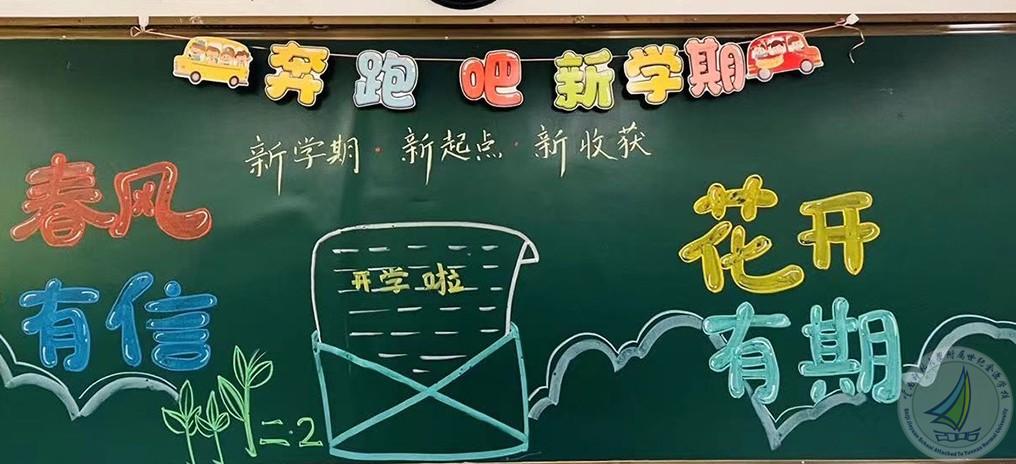 奔跑吧新学期
新学期·新起点·新收获
春风
有信
花开
有期
开学啦
二·2